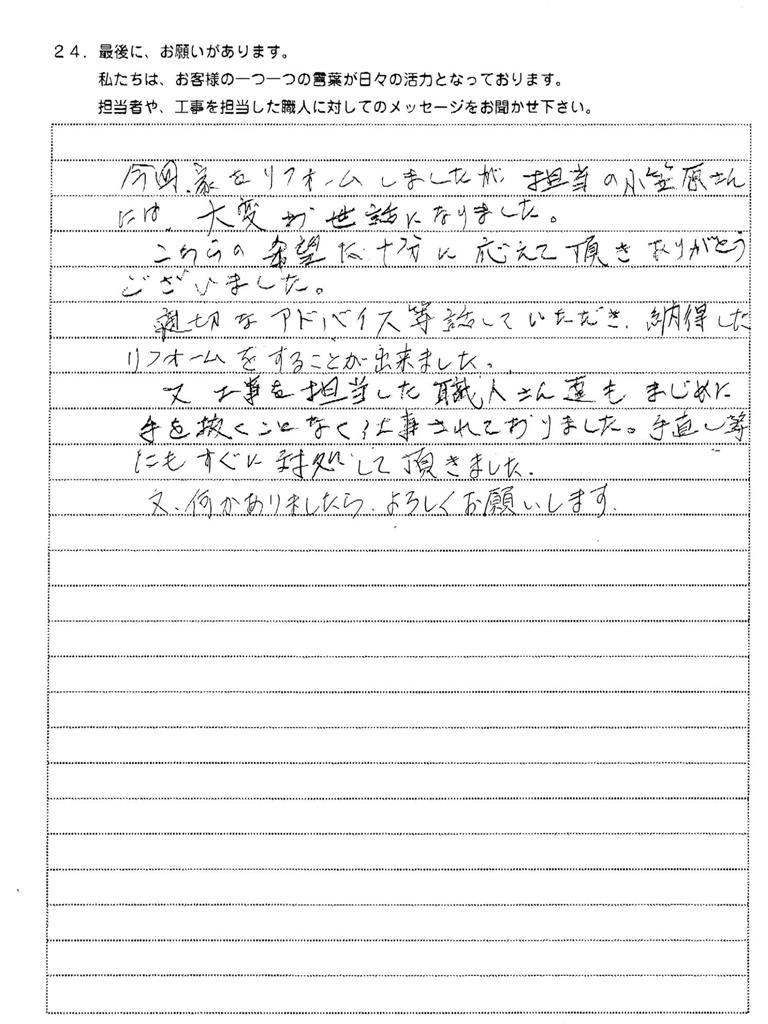 24．最後に、お願いがあります。
私たちは、お客様の一つ一つの言葉が日々の活力となっております。
担当者や、工事を担当した職人に対してのメッセージをお聞かせ下さい。
今回、家をリフォームしましたが 担当の小笠原さん
には、大変お世話になりました。
こちらの希望に十分に応えて頂きありがとう
ございました。
適切なアドバイス等話していただき、納得した
リフォームをすることが出来ました。
又 工事を担当した職人さん達も まじめに
手を抜くことなく仕事されておりました。手直し等
にもすぐに対処して頂きました。
又、何かありましたら、よろしくお願いします。